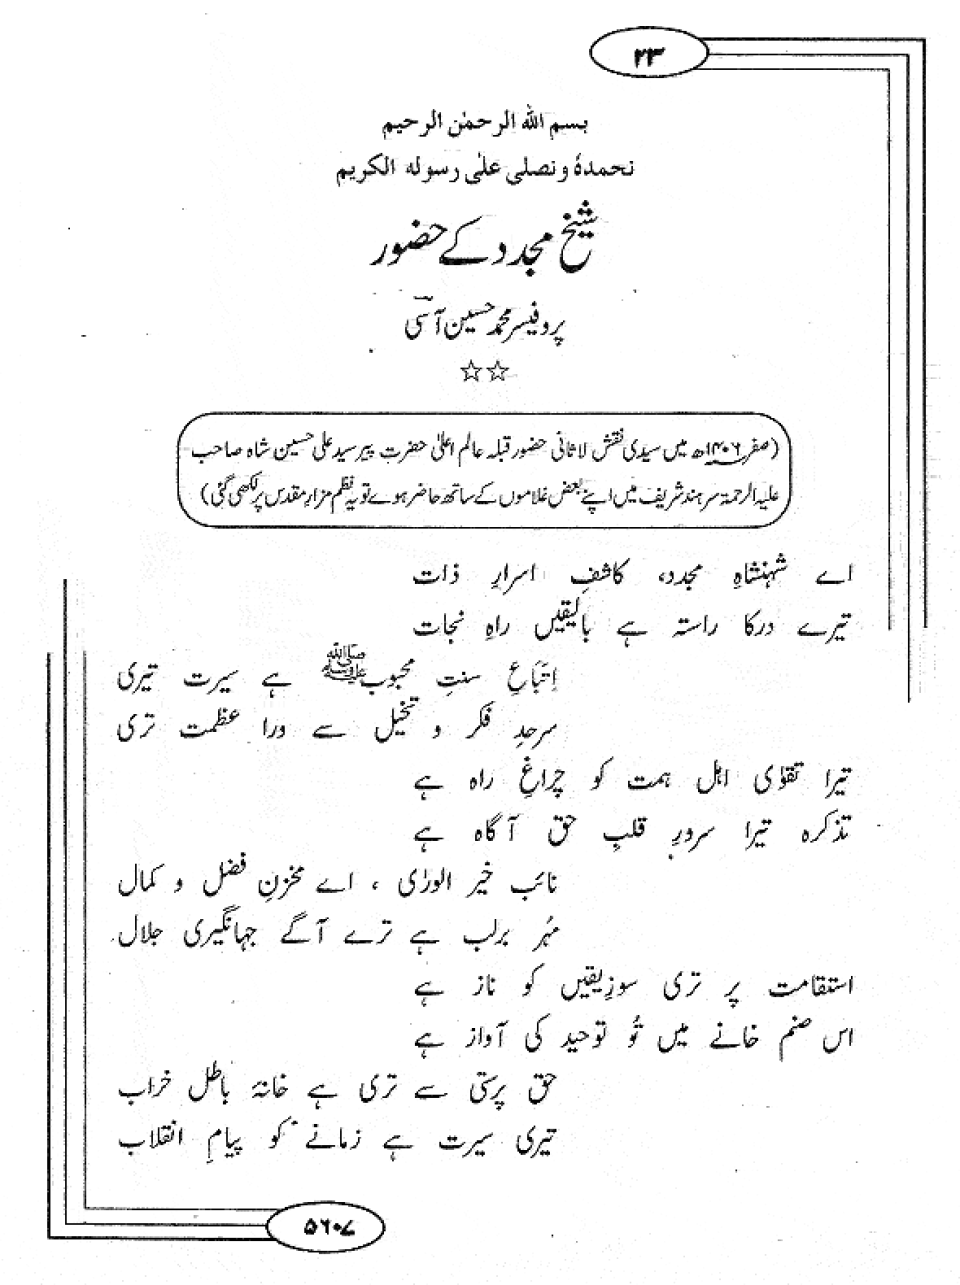 ۲۳
بسم الله الرحمٰن الرحیم
نحمدہٗ و نصلی علیٰ رسولہ الکریم
شیخ مجدد کے حضور
پروفیسر محمد حسین آسیؔ
☆☆
(صفر ۱۴۰۶ھ میں سیدی نقش لاثانی حضور قبلہ عالم اعلیٰ حضرت پیر سید علی حسین شاہ صاحب
علیہ الرحمۃ سرہند شریف میں اپنے بعض غلاموں کے ساتھ حاضر ہوے تو یہ نظم مزارِ مقدس پر لکھی گئی)
اے شہنشاہِ مجدد، کاشفِ اسرارِ ذات
تیرے در کا راستہ ہے بالیقیں راہِ نجات
اِتّباعِ سنتِ محبوب ﷺ ہے سیرت تیری
سرحدِ فکر و تخیل سے ورا عظمت تری
تیرا تقوٰی اہل ہمت کو چراغِ راہ ہے
تذکرہ تیرا سرورِ قلبِ حق آگاہ ہے
نائب خیر الورٰی ، اے مخزنِ فضل و کمال
مُہر برلب ہے ترے آگے جہانگیری جلال
استقامت پر تری سوزِ یقیں کو ناز ہے
اس صنم خانے میں تُو توحید کی آواز ہے
حق پرستی سے تری ہے خانۂ باطل خراب
تیری سیرت ہے زمانے کو پیامِ انقلاب
۵۶۰۷